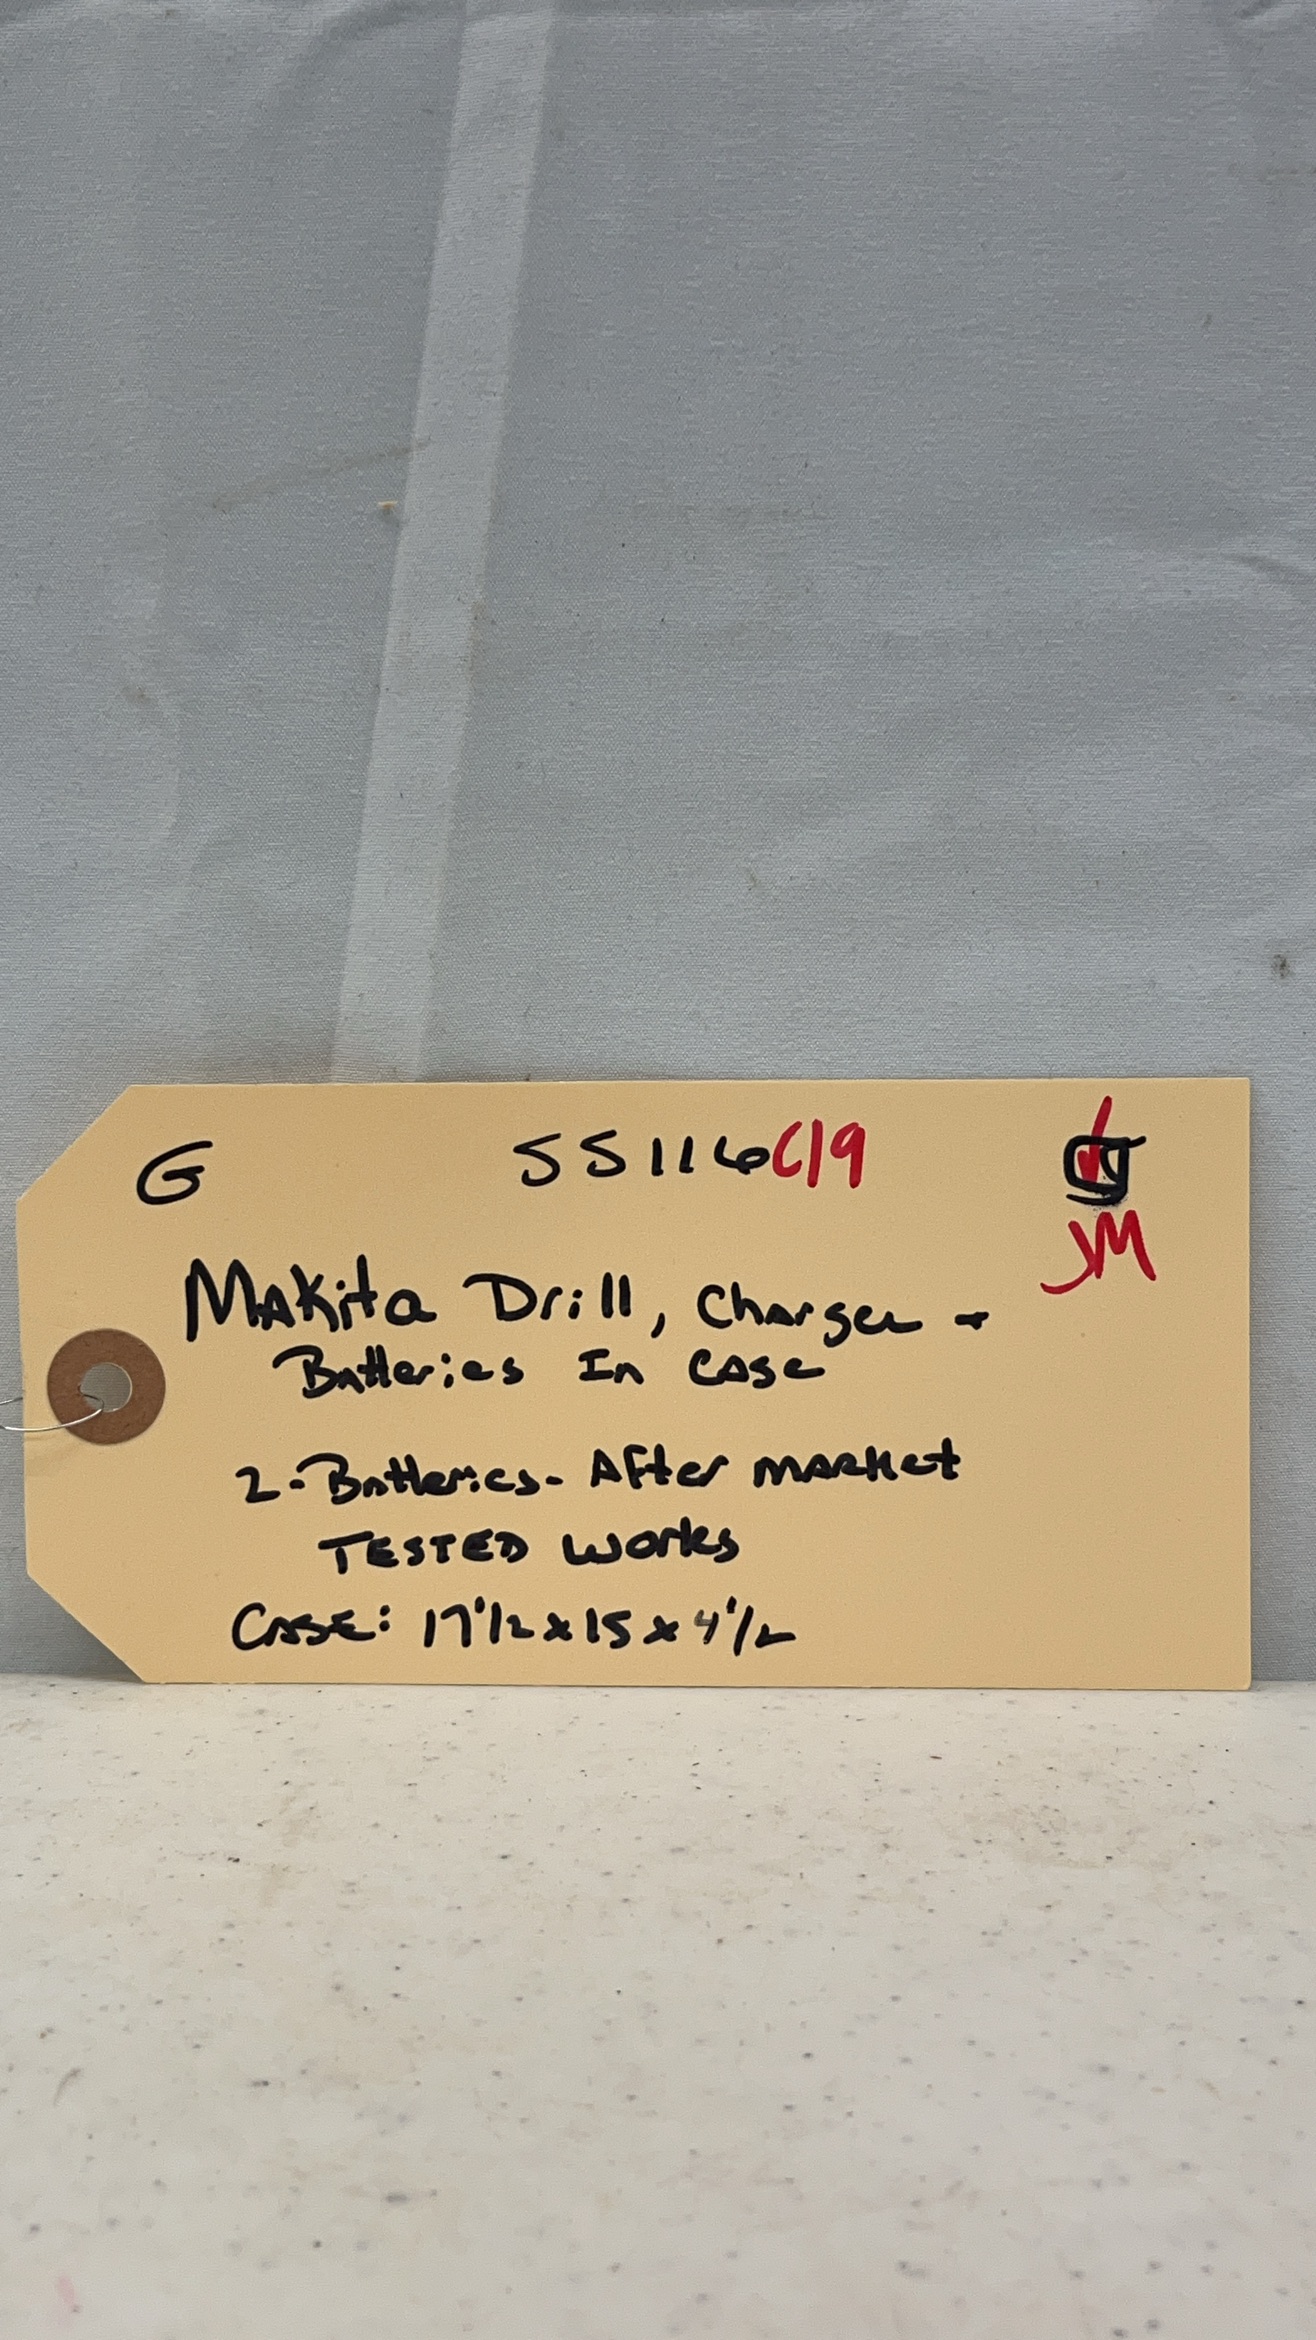 G 55116 C19
JM
Makita Drill, Charger +
Batteries In Case
2-Batteries- After market
TESTED Works
CASE: 17 1/2 x 15 x 4 1/2